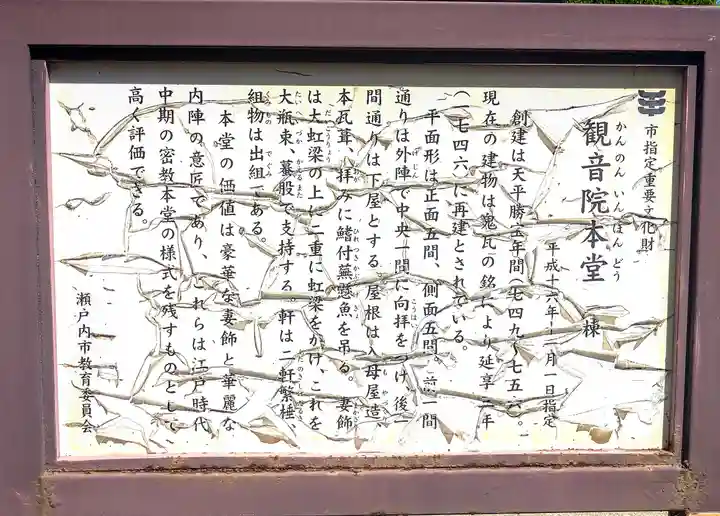 市指定重要文化財
かんのん いん ほん どう
観音院本堂 棟
平成十六年 一月一日指定
創建は天平勝宝年間(七四九~七五六)。
現在の建物は鬼瓦の銘により延享 年
(一七四六)に再建とされている。
平面形は正面五間、側面五間。前一間
通りは外陣で中央一間に向拝をつけ、後一
間通りは下屋とする。屋根は入母屋造、
本瓦葺、拝みに鰭付蕪懸魚を吊る。妻飾
は大虹梁の上に二重に虹梁をかけ、これを
大瓶束、蟇股で支持する。軒は二軒繁棰、
組物は出組である。
本堂の価値は豪華な妻飾と華麗な
内陣の意匠であり、これらは江戸時代
中期の密教本堂の様式を残すものとして
高く評価できる。
瀬戸内市教育委員会